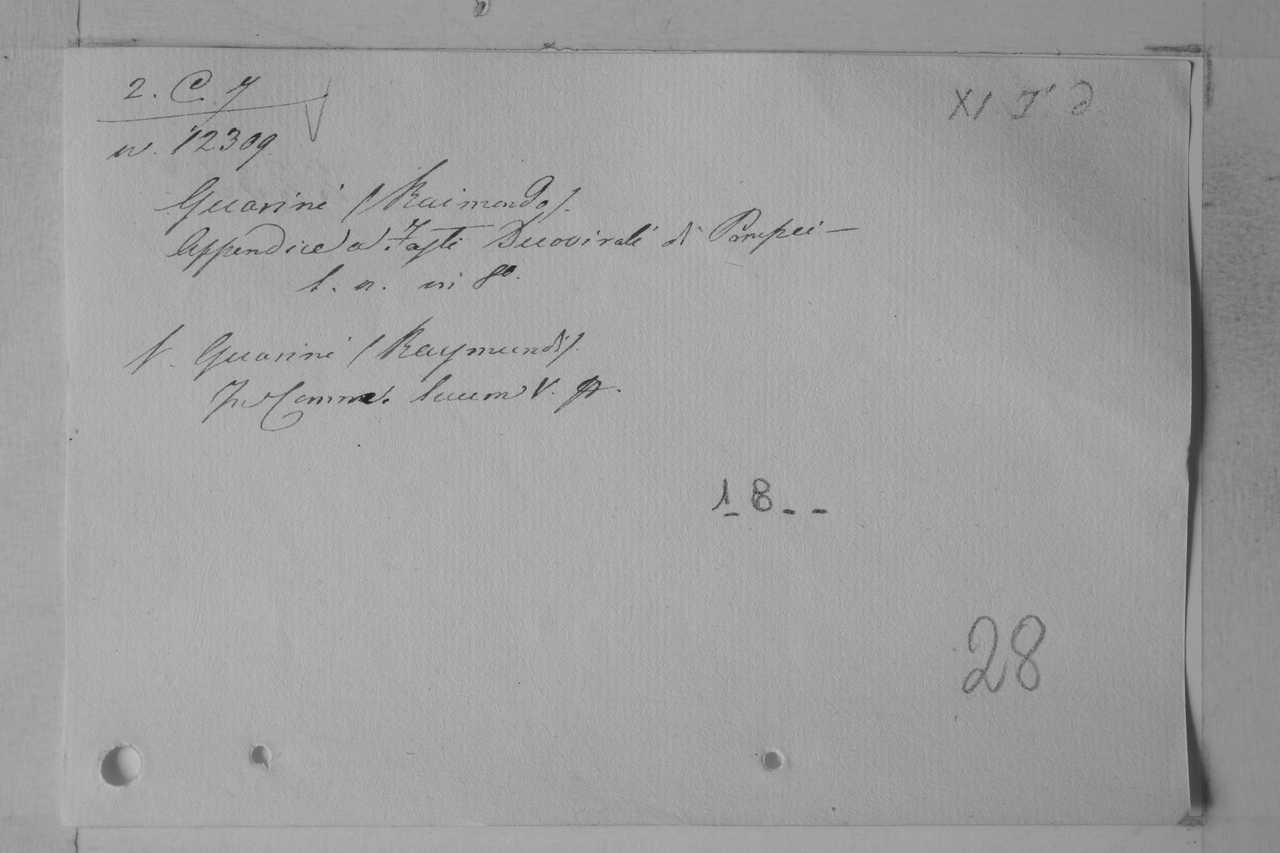 2. C. 7
XI I' d
n. 12309
Guarini (Raimondo).
Appendice a' Fasti Duovirali di Pompei —
l. a. in 8º.
V. Guarini (Raymundi).
In Comm. V.
18--
28